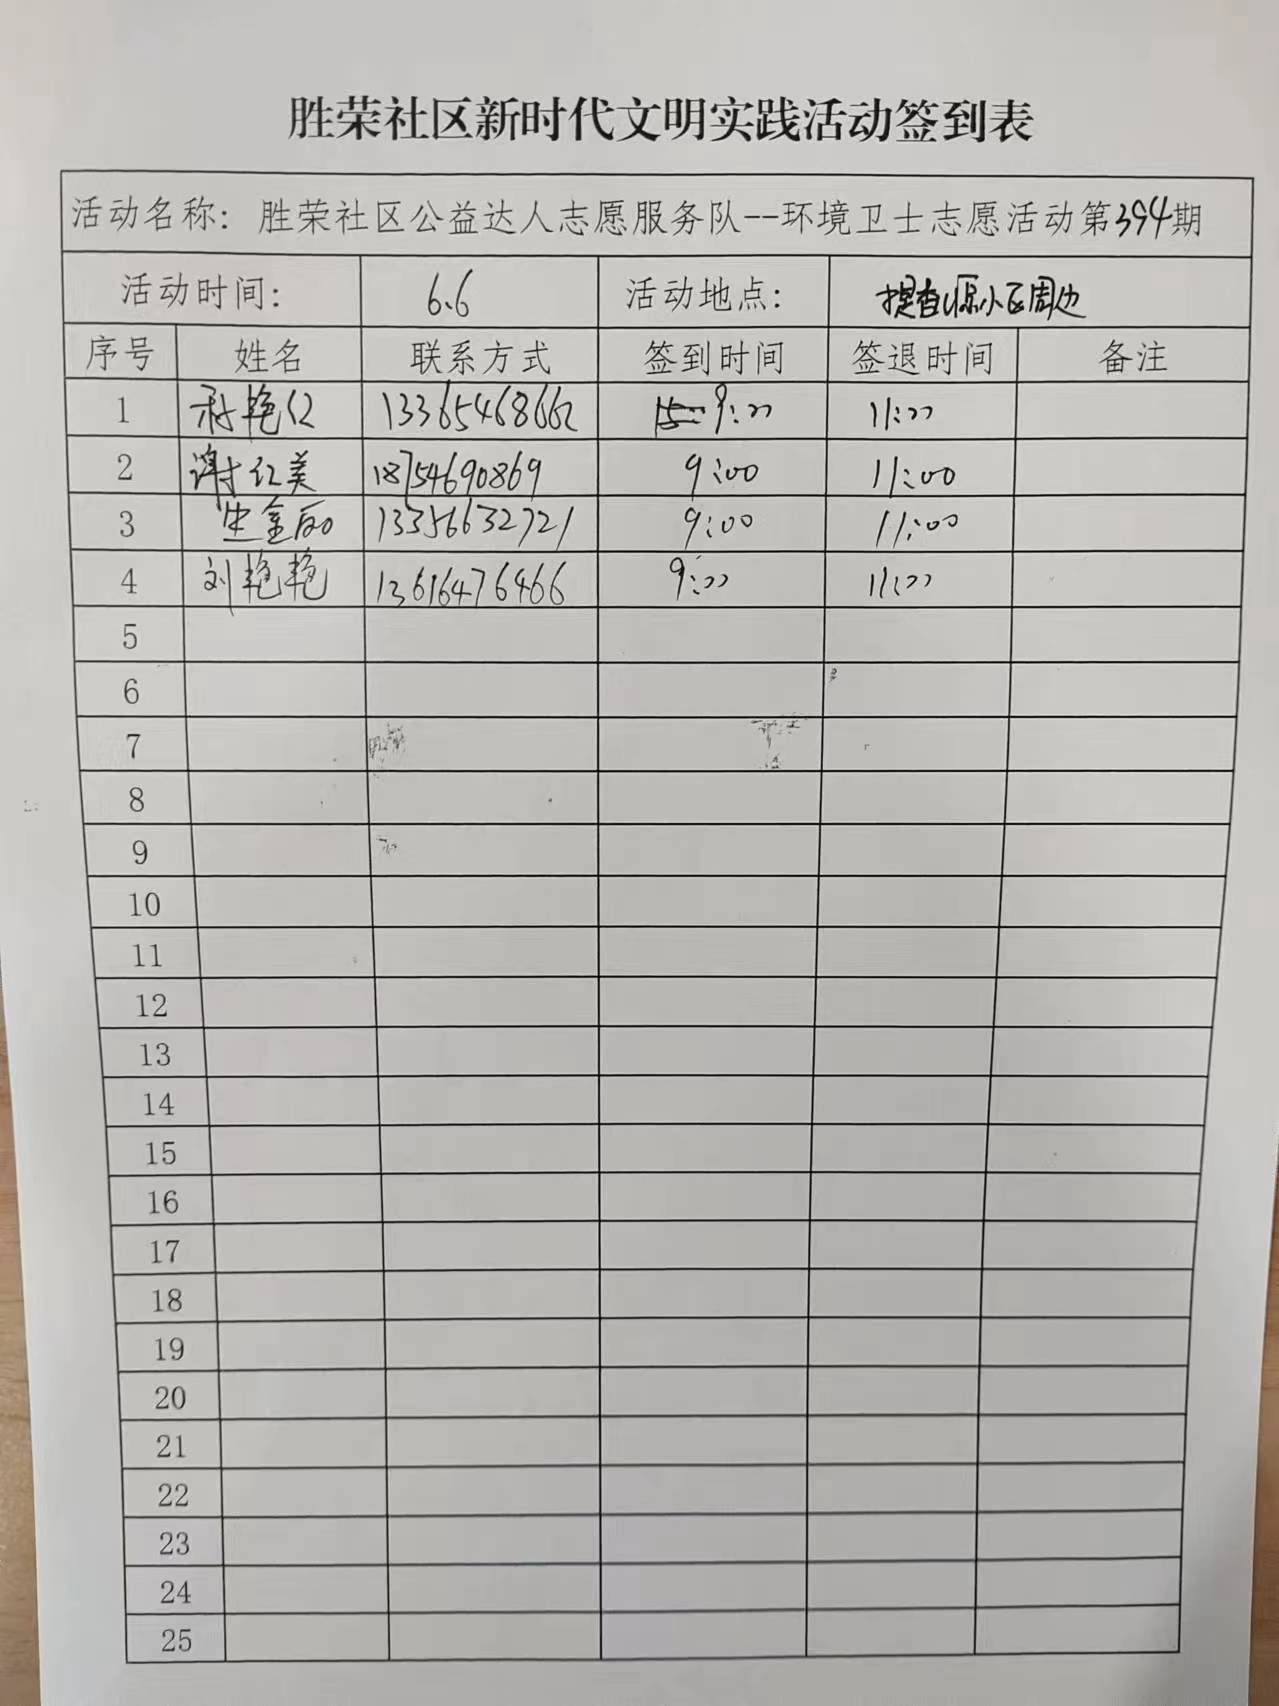 胜荣社区新时代文明实践活动签到表
活动名称：胜荣社区公益达人志愿服务队--环境卫士志愿活动第394期
活动时间： 6.6 活动地点： 提香源小区周边
序号 姓名 联系方式 签到时间 签退时间 备注
1 艳红 13365468662 9:00 11:00
2 谢红美 18754690869 9:00 11:00
3 生金丽 13356632721 9:00 11:00
4 刘艳艳 13616476466 9:00 11:00
5
6
7
8
9
10
11
12
13
14
15
16
17
18
19
20
21
22
23
24
25